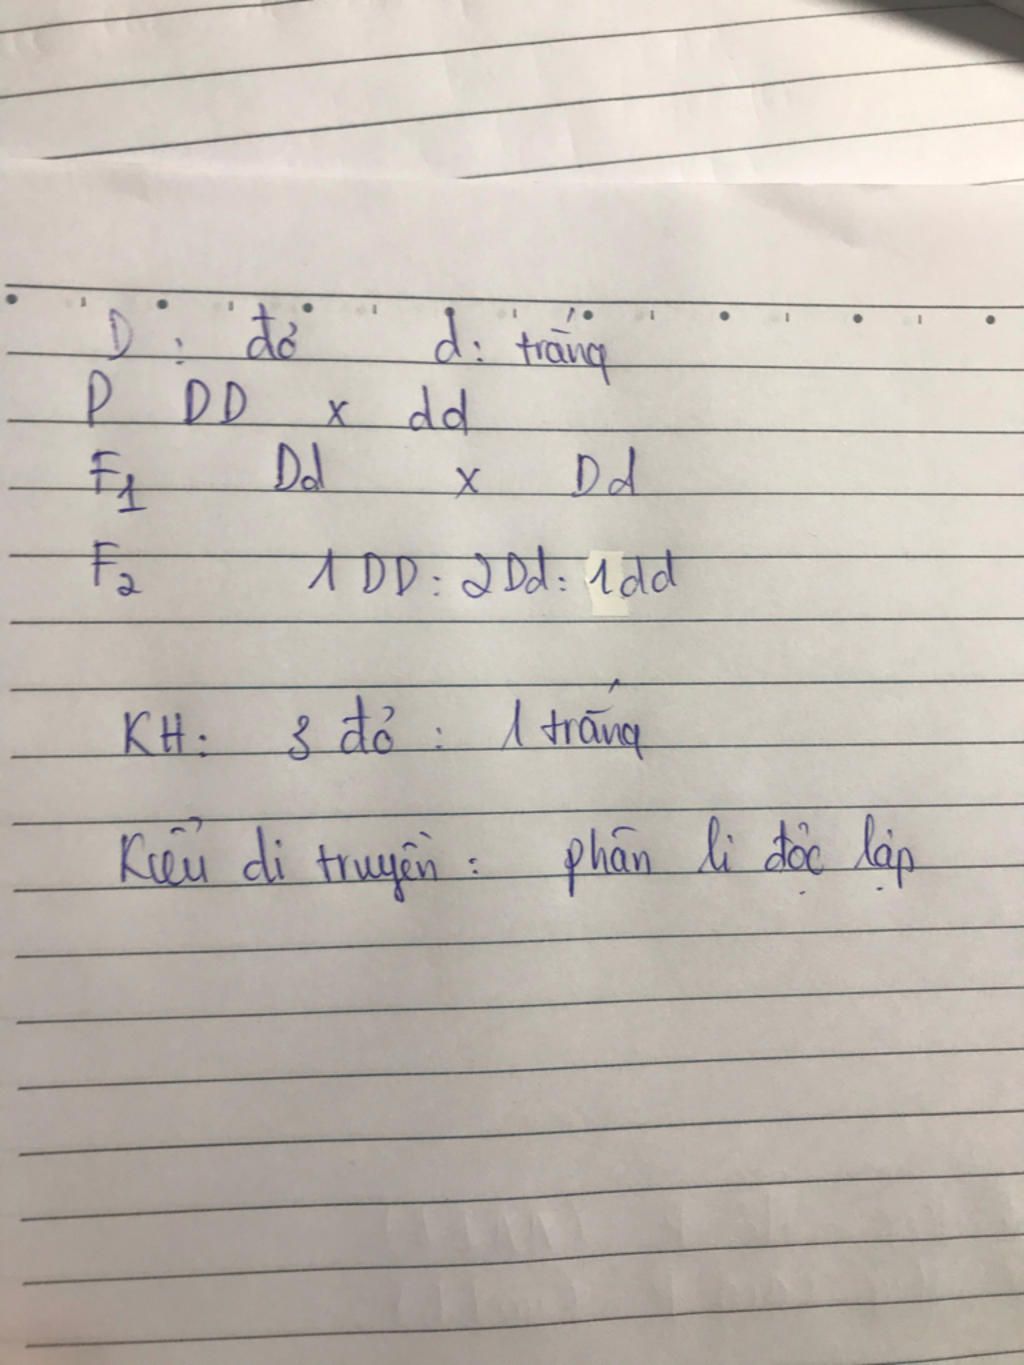 D : đỏ d: trắng
P DD x dd
F1 Dd x Dd
F2 1 DD: 2Dd: 1dd
KH: 3 đỏ : 1 trắng
Kiểu di truyền : phân li độc lập